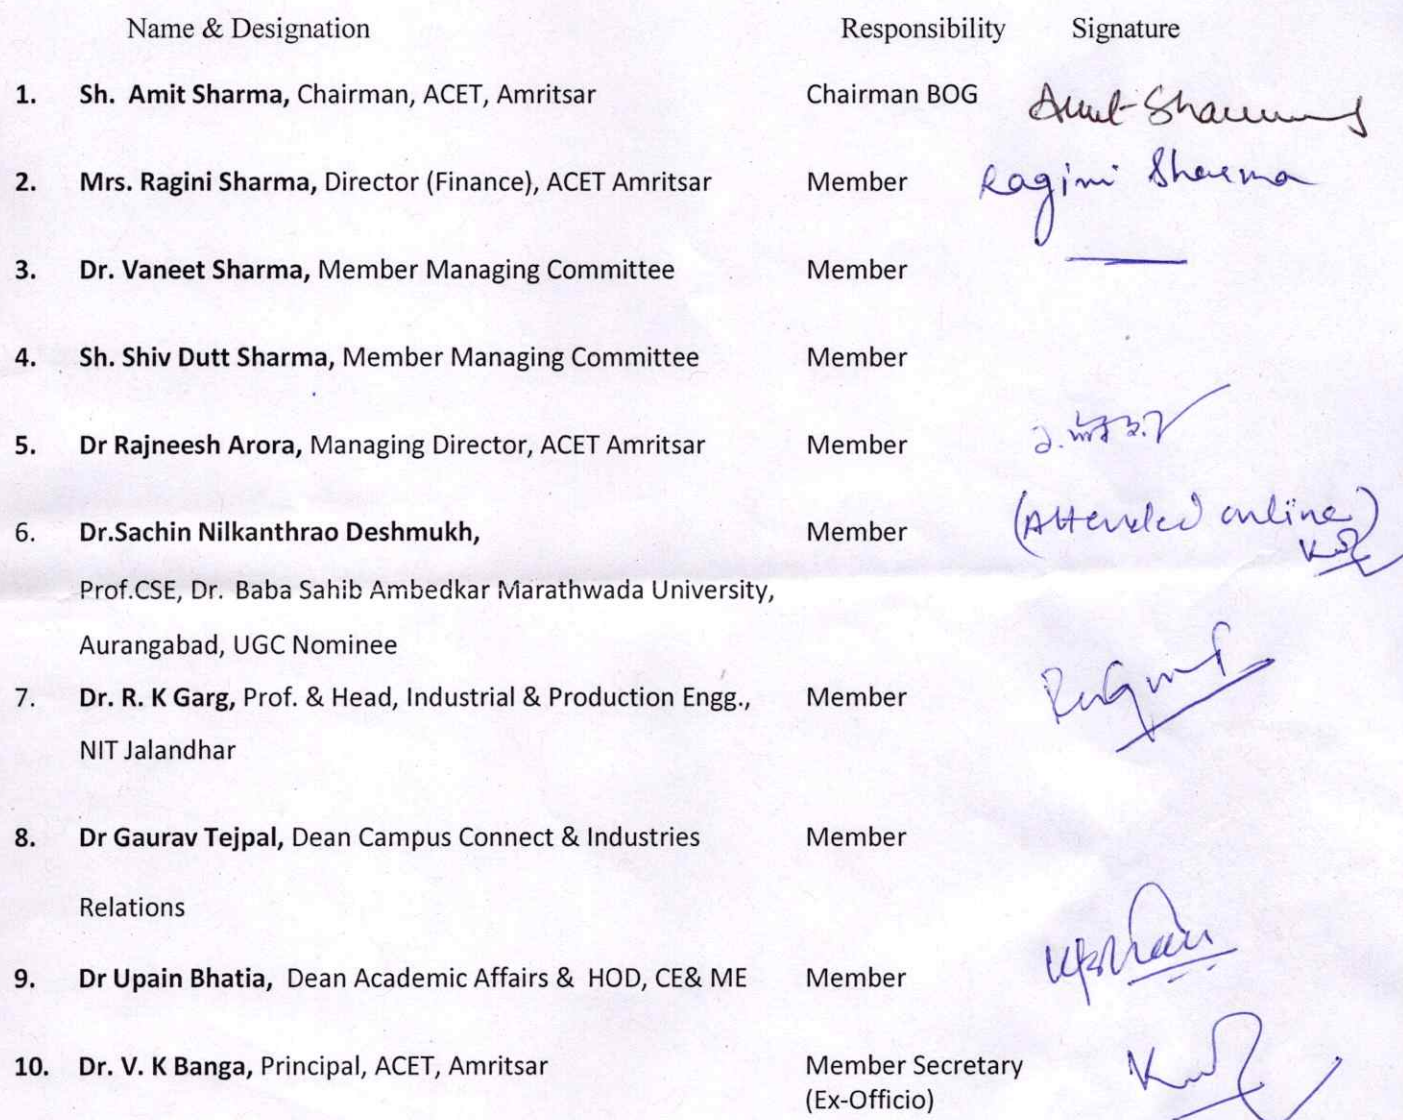 Name & Designation Responsibility Signature
1. Sh. Amit Sharma, Chairman, ACET, Amritsar Chairman BOG Amit Sharma
2. Mrs. Ragini Sharma, Director (Finance), ACET Amritsar Member Ragini Sharma
3. Dr. Vaneet Sharma, Member Managing Committee Member
4. Sh. Shiv Dutt Sharma, Member Managing Committee Member
5. Dr Rajneesh Arora, Managing Director, ACET Amritsar Member
6. Dr.Sachin Nilkanthrao Deshmukh, Member (Attended online)
Prof.CSE, Dr. Baba Sahib Ambedkar Marathwada University,
Aurangabad, UGC Nominee
7. Dr. R. K Garg, Prof. & Head, Industrial & Production Engg., Member
NIT Jalandhar
8. Dr Gaurav Tejpal, Dean Campus Connect & Industries Member
Relations
9. Dr Upain Bhatia, Dean Academic Affairs & HOD, CE& ME Member
10. Dr. V. K Banga, Principal, ACET, Amritsar Member Secretary
(Ex-Officio)